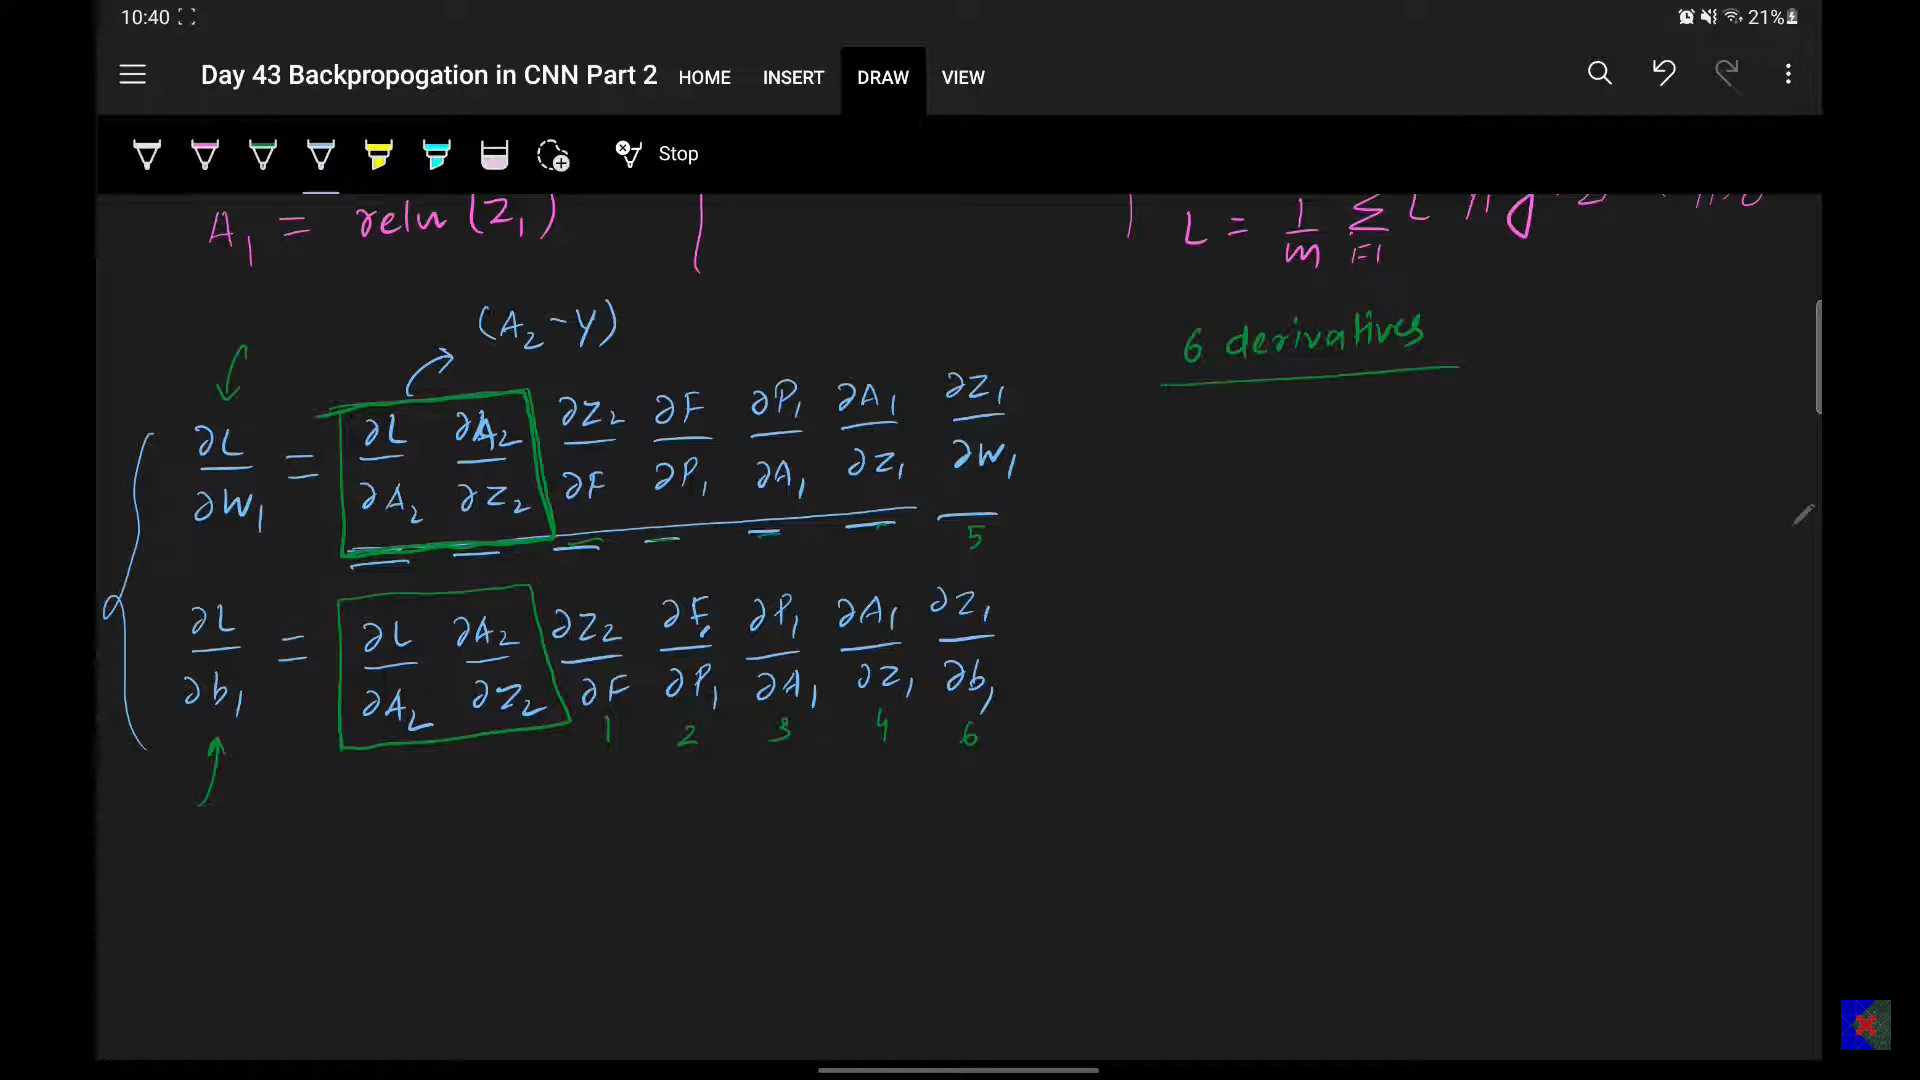 10:40 21%
Day 43 Backpropogation in CNN Part 2 HOME INSERT DRAW VIEW
Stop
A₁ = relu (Z₁)
L = 1/m Σ i=1
(A₂ - Y)
6 derivatives
∂L/∂W₁ = ∂L/∂A₂ ∂A₂/∂Z₂ ∂Z₂/∂F ∂F/∂P₁ ∂P₁/∂A₁ ∂A₁/∂Z₁ ∂Z₁/∂W₁
5
∂L/∂b₁ = ∂L/∂A₂ ∂A₂/∂Z₂ ∂Z₂/∂F ∂F/∂P₁ ∂P₁/∂A₁ ∂A₁/∂Z₁ ∂Z₁/∂b₁
1 2 3 4 6